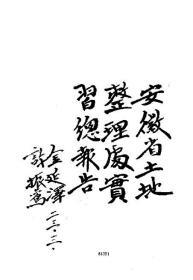 安徽省土地
整理處實
習總報告
金延澤
許振鸞
二三·二·
84351